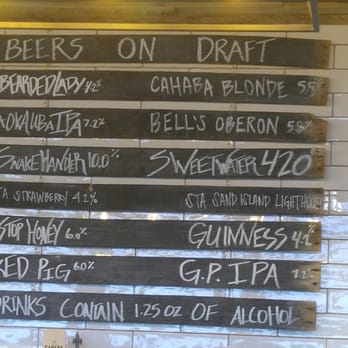 BEERS ON DRAFT
BEARDED LADY 7.2% CAHABA BLONDE 5.5%
IPA 7.2% BELL'S OBERON 5.8%
SNAKE HANDLER 10.0% SWEETWATER 420
STRAWBERRY 4.2% STA. SAND ISLAND LIGHTHOUSE
STOP HONEY 6.0% GUINNESS 4.2%
PIG 6.0% G.P. IPA 7.2%
DRINKS CONTAIN 1.25 OZ OF ALCOHOL